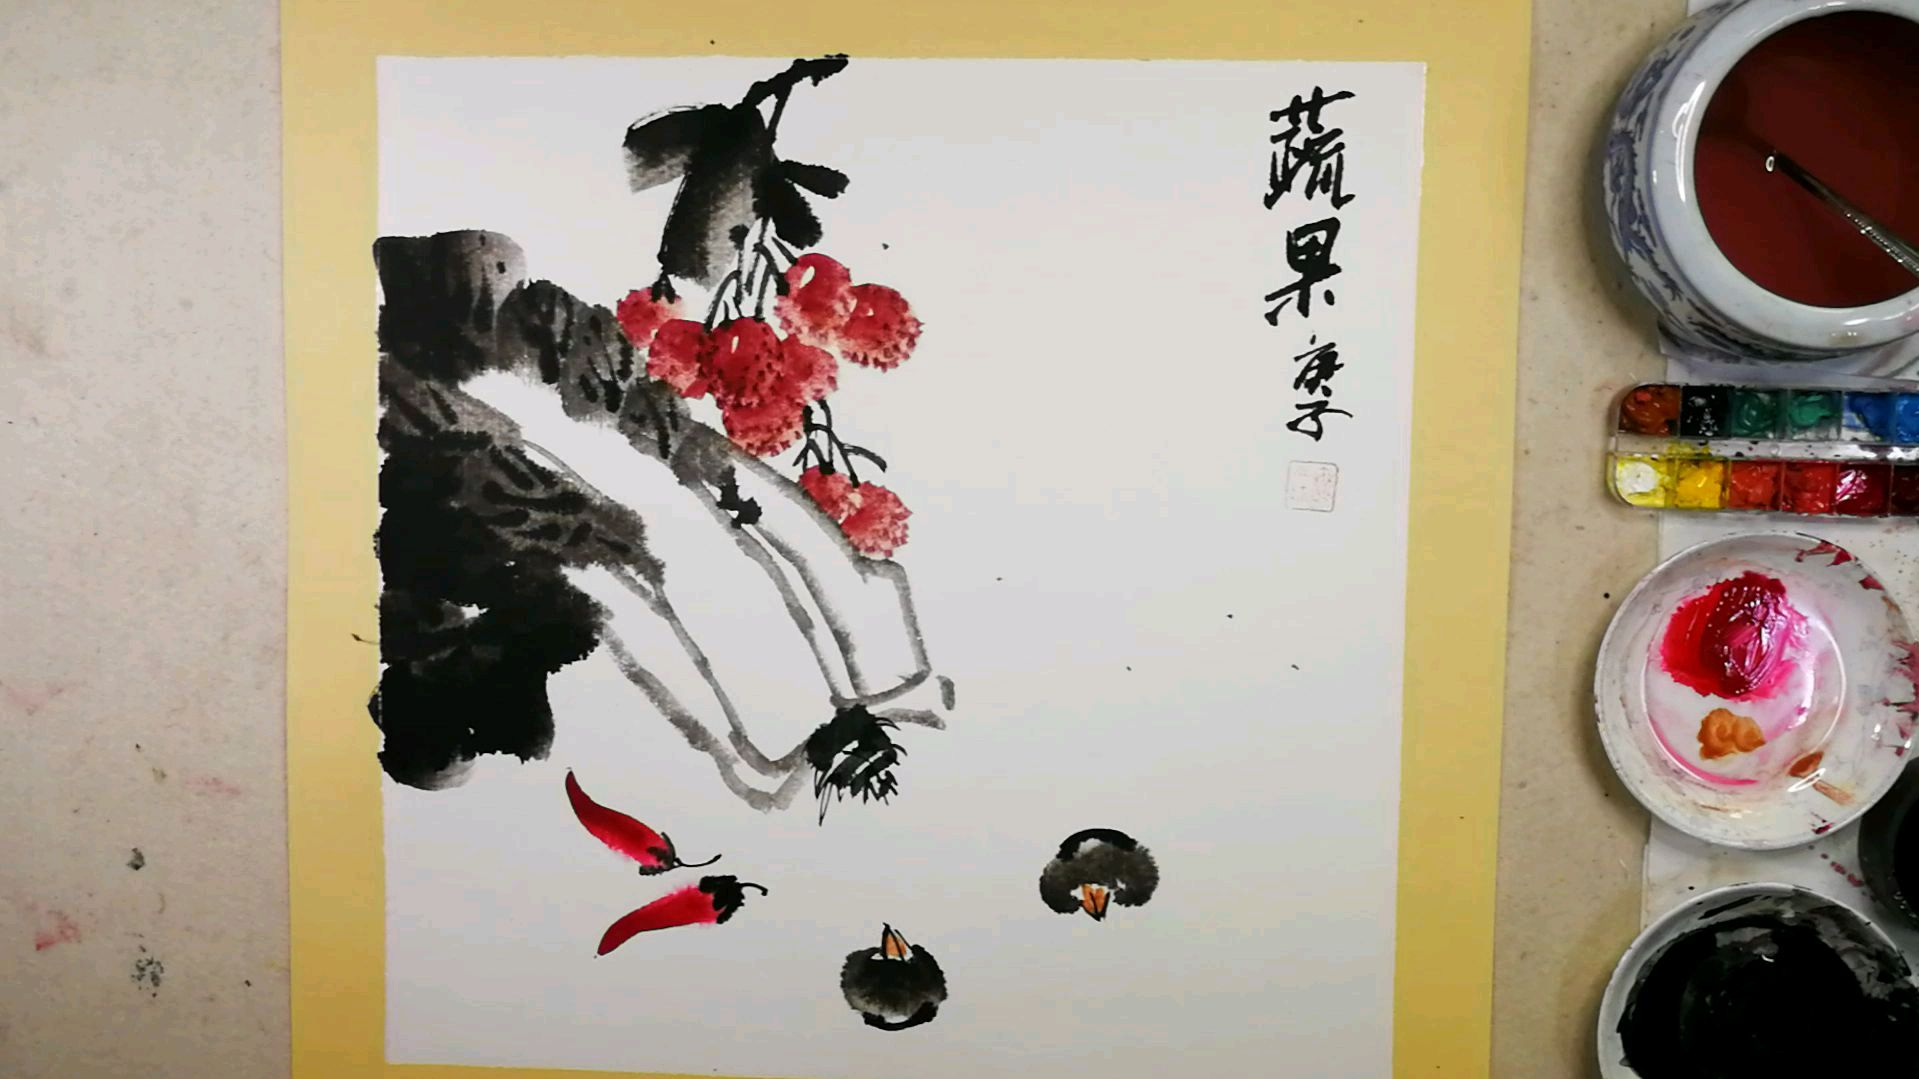 蔬果
庚子